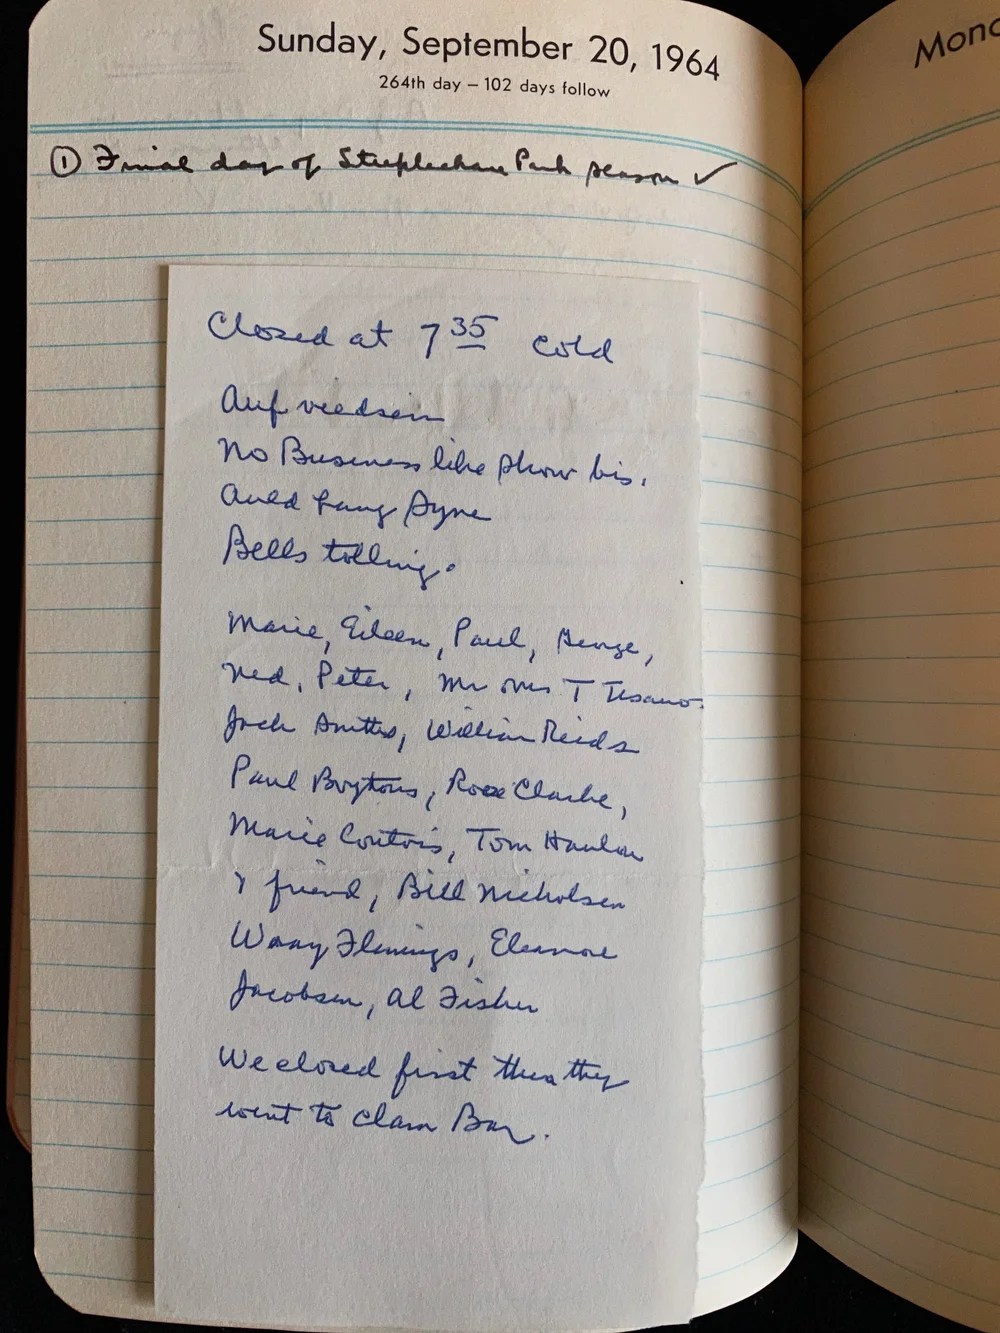 Sunday, September 20, 1964
264th day – 102 days follow
Mond
① Final day of Steeplechase Park season ✓
Closed at 7 35 cold
Auf viedsein
No Business like show bis.
Auld Lang Syne
Bells tolling.
Marie, Eileen, Paul, George,
Ned, Peter, Mr Mrs T Tesauro.
Jack Smitts, William Reids
Paul Boytons, Rose Clarke,
Marie Contois, Tom Hanlon
& friend, Bill Nicholsen
Flemings, Eleanore
Jacobsen, Al Fisher
We closed first then they
went to clam Bar.